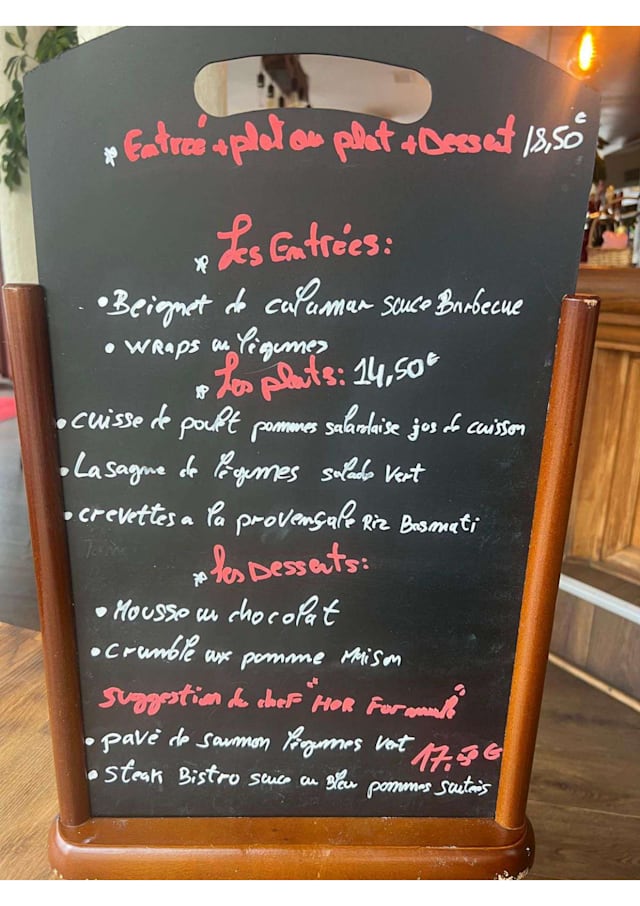 * Entrée + plat ou plat + Dessert 18,50€
* Les Entrées:
• Beignet de calamar sauce Barbecue
• WRAPS au légumes
* Les plats: 14,50€
• cuisse de poulet pommes salardaise jus de cuisson
• Lasagne de légumes salade vert
• crevettes a la provençale Riz Basmati
* les Desserts:
• Mousse au chocolat
• crumble aux pomme Maison
suggestion du chef "HOR Formule"
• pavé de saumon légumes vert
• steak Bistro sauce au Bleu pommes sautées